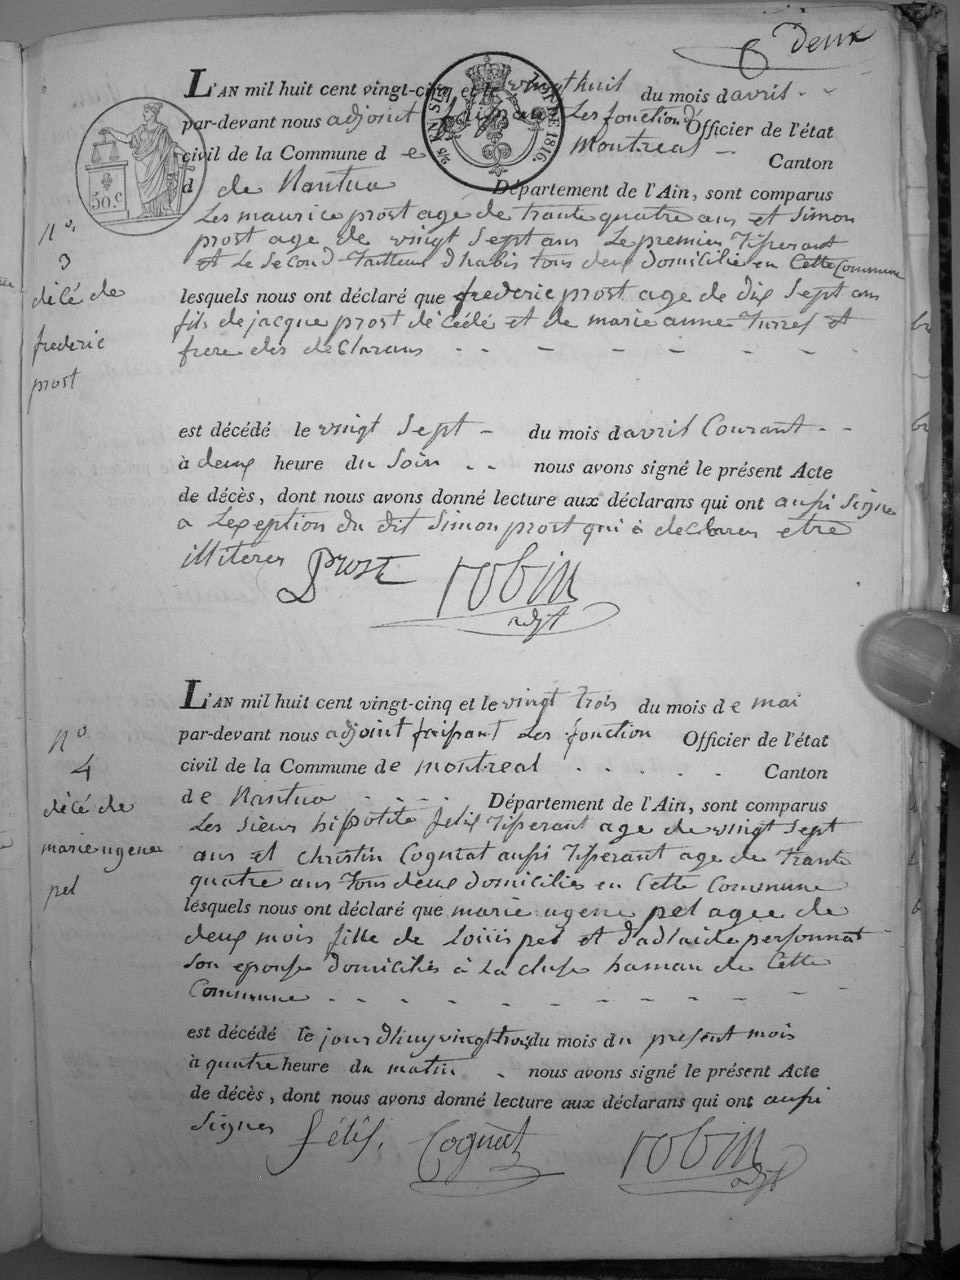 deux
L'AN mil huit cent vingt-cinq et le vingt huit du mois d avril
par-devant nous adjoint faisant Les fonction d' Officier de l'état
civil de la Commune d e montreal Canton
d de Nantua Département de l'Ain, sont comparus
Les maurice prost age de trante quatre ans et Simon
prost age de vingt Sept ans Le premier Tiserant
et Le Second Tailleur d'habis tous deux domicilié en Cette Commune
lesquels nous ont déclaré que frederic prost age de dix Sept ans
fils de jacque prost décédé et de marie anne et
frere des declarans
est décédé le vingt Sept du mois d avril Courant
à deux heure du Soir nous avons signé le présent Acte
de décès, dont nous avons donné lecture aux déclarans qui ont aussi Signe
a Lexeption du dit Simon prost qui à declarer etre
illiteres Prost robin
adjt
n°.
3
décé de
frederic
prost
50.c
TIMBRE 1816.
L'AN mil huit cent vingt-cinq et le vingt trois du mois d e mai
par-devant nous adjoint faisant Les fonction Officier de l'état
civil de la Commune d e montreal Canton
d e Nantua Département de l'Ain, sont comparus
Les Sieurs hippolite félix Tiserant age de vingt Sept
ans et Christin Cogniat aussi Tiserant age de Trante
quatre ans tous deux domiciliés en Cette Commune
lesquels nous ont déclaré que marie ugene pel agee de
deux mois fille de Louiis pel et d'adlaide personnat
Son epouse domiciliés à La cluse hamau de Cette
Commune
est décédé le jour d'huy vingt trois du mois du present mois
à quatre heure du matin nous avons signé le présent Acte
de décès, dont nous avons donné lecture aux déclarans qui ont aussi
Signes félix. Cogniat robin
adjt
n°.
4
décé de
marie ugene
pel